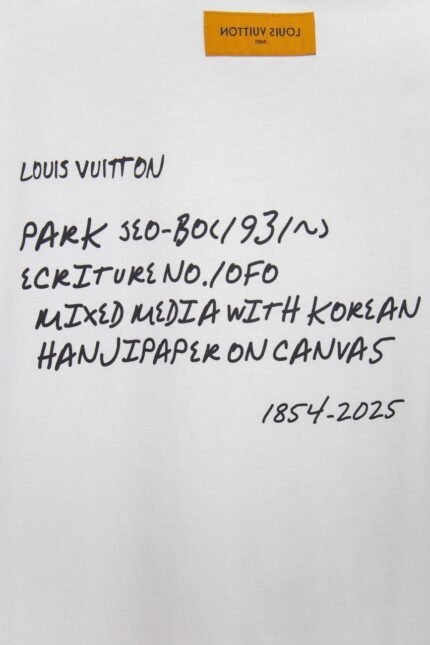 LOUIS VUITTON
PARIS
LOUIS VUITTON
PARK SEO-BO(1931~)
ECRITURE NO./OFO
MIXED MEDIA WITH KOREAN
HANJIPAPER ON CANVAS
1854-2025